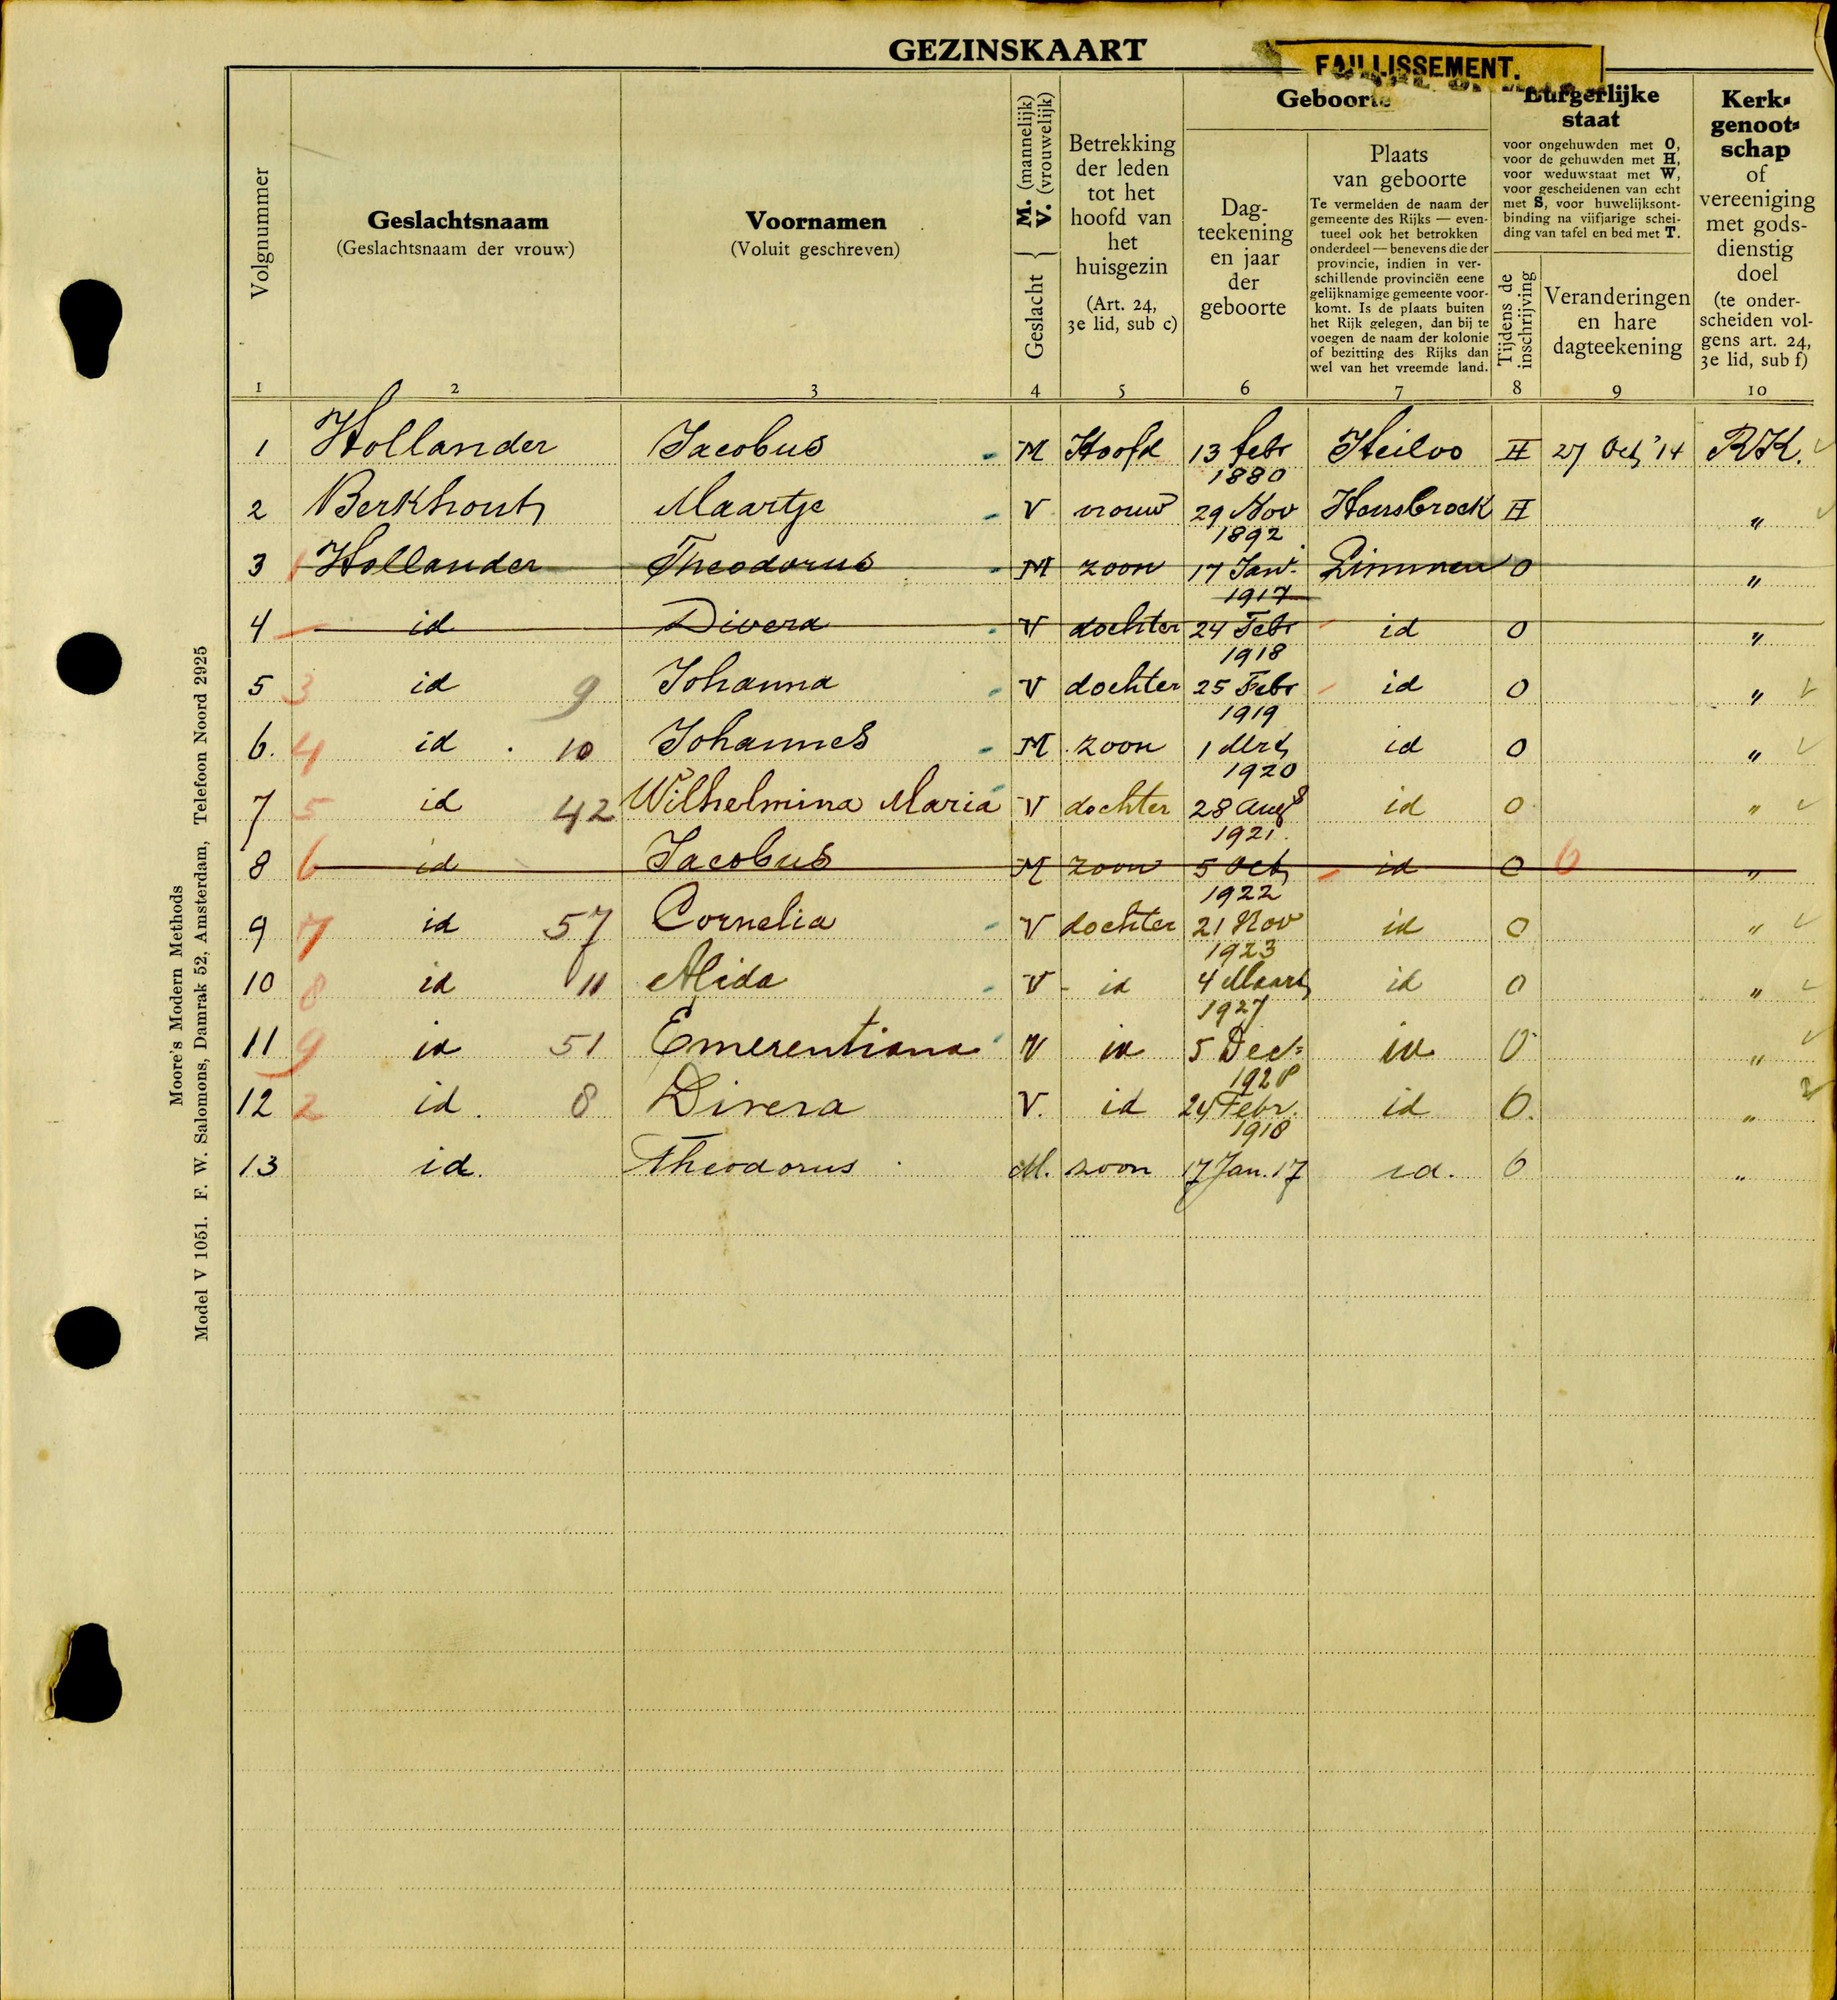 GEZINSKAART
FAILLISSEMENT.
Volgnummer
Geslachtsnaam
(Geslachtsnaam der vrouw)
Voornamen
(Voluit geschreven)
Geslacht { M. (mannelijk) V. (vrouwelijk)
Betrekking
der leden
tot het
hoofd van
het
huisgezin
(Art. 24,
3e lid, sub c)
Geboorte
Dag-
teekening
en jaar
der
geboorte
Plaats
van geboorte
Te vermelden de naam der
gemeente des Rijks — even-
tueel ook het betrokken
onderdeel — benevens die der
provincie, indien in ver-
schillende provinciën eene
gelijknamige gemeente voor-
komt. Is de plaats buiten
het Rijk gelegen, dan bij te
voegen de naam der kolonie
of bezitting des Rijks dan
wel van het vreemde land.
Burgerlijke
staat
voor ongehuwden met O,
voor de gehuwden met H,
voor weduwstaat met W,
voor gescheidenen van echt
met S, voor huwelijksont-
binding na vijfjarige schei-
ding van tafel en bed met T.
Tijdens de
inschrijving
Veranderingen
en hare
dagteekening
Kerk-
genoot-
schap
of
vereeniging
met gods-
dienstig
doel
(te onder-
scheiden vol-
gens art. 24,
3e lid, sub f)
1 2 3 4 5 6 7 8 9 10
1 Hollander Jacobus M Hoofd 13 febr 1880 Heiloo H 27 Oct '14 R.K.
2 Berkhout Maartje V vrouw 29 Nov 1892 Hensbroek H "
3 1 Hollander Theodorus M zoon 17 Jan. 1917 Limmen O "
4 id Divera V dochter 24 Febr 1918 id O "
5 3 id 9 Johanna V dochter 25 Febr 1919 id O "
6. 4 id . 10 Johannes M zoon 1 Mrt 1920 id O "
7 5 id 42 Wilhelmina Maria V dochter 28 Aug 1921 id O "
8 6 id Jacobus M zoon 5 Oct 1922 id O 6 "
9 7 id 57 Cornelia V dochter 21 Nov 1923 id O "
10 8 id 11 Alida V - id 4 Maart 1927 id O "
11 9 id 51 Emerentiana V id 5 Dec. 1928 id O "
12 2 id. 8 Divera V. id 24 Febr. 1918 id O. "
13 id. Theodorus M. zoon 17 Jan. 17 id. O "
Moore's Modern Methods
Model V 1051. F. W. Salomons, Damrak 52, Amsterdam, Telefoon Noord 2925